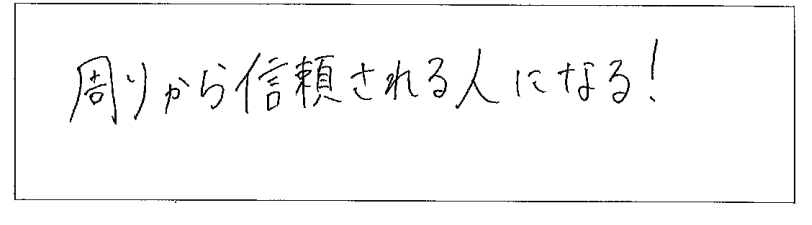 周りから信頼される人になる!